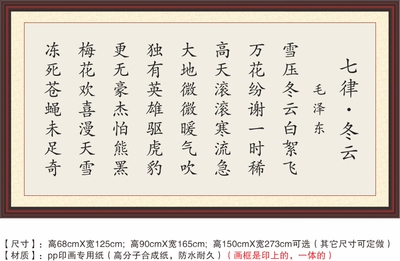 七律·冬云
毛泽东
雪压冬云白絮飞
万花纷谢一时稀
高天滚滚寒流急
大地微微暖气吹
独有英雄驱虎豹
更无豪杰怕熊罴
梅花欢喜漫天雪
冻死苍蝇未足奇
【尺寸】：高68cmX宽125cm; 高90cmX宽165cm; 高150cmX宽273cm可选（其它尺寸可定做）
【材质】：pp印画专用纸（高分子合成纸，防水耐久）（画框是印上的，一体的）